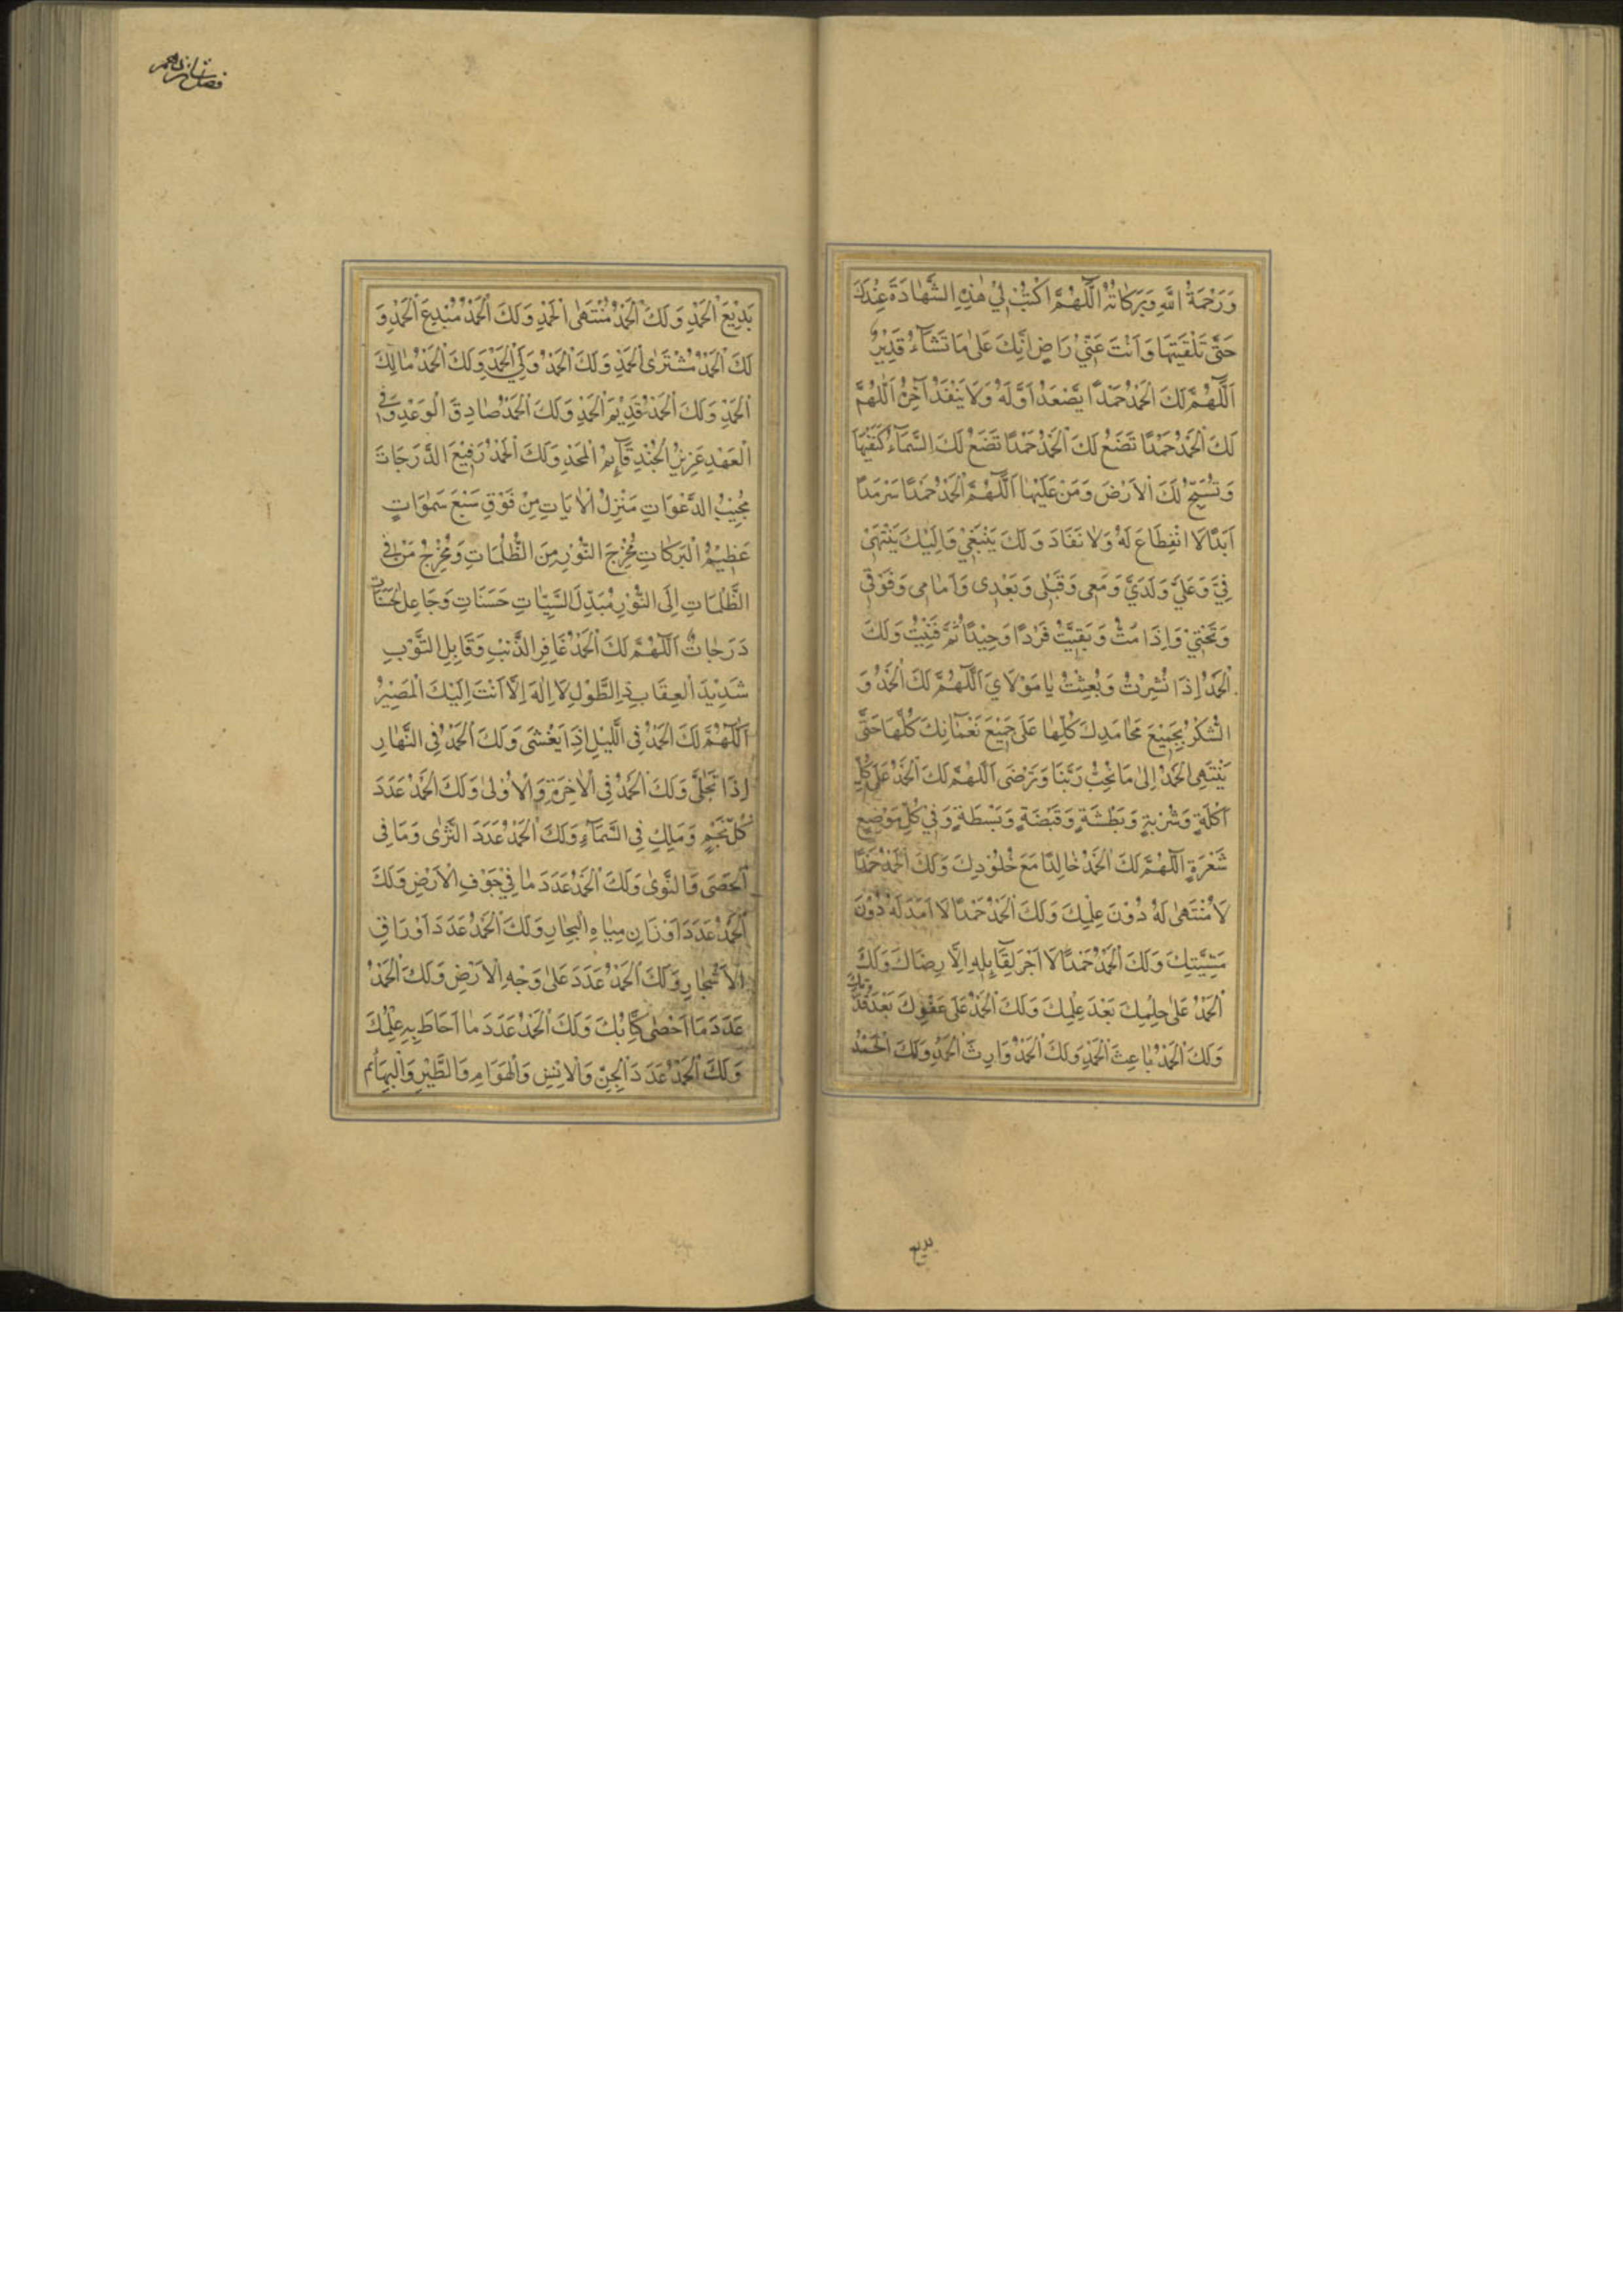 وَرَحْمَةُ اللهِ وَبَرَكَاتُهُ اَللّٰهُمَّ اكْتُبْ لِي هٰذِهِ الشَّهَادَةَ عِنْدَكَ
حَتّٰى تُلَقِّيَنِيهَا وَاَنْتَ عَنِّيْ رَاضٍ اِنَّكَ عَلٰى مَا تَشَآءُ قَدِيْرٌ
اَللّٰهُمَّ لَكَ الْحَمْدُ حَمْدًا يَصْعَدُ اَوَّلُهُ وَلَا يَنْفَدُ آخِرُهُ اَللّٰهُمَّ
لَكَ الْحَمْدُ حَمْدًا تَضَعُ لَكَ الْحَمْدُ حَمْدًا تَضَعُ لَكَ السَّمَآءُ كَنَفَيْهَا
وَتُسَبِّحُ لَكَ الْاَرْضَ وَمَنْ عَلَيْهَا اَللّٰهُمَّ الْحَمْدُ حَمْدًا سَرْمَدًا
اَبَدًا لَا انْقِطَاعَ لَهُ وَلَا نَفَادَ وَلَكَ يَنْبَغِيْ وَاِلَيْكَ يَنْتَهِيْ
فِيَّ وَعَلَيَّ وَلَدَيَّ وَمَعِى وَقَبْلِى وَبَعْدِى وَاَمَامِى وَفَوْقِى
وَتَحْتِيْ وَاِذَا مُتُّ وَبَقِيْتُ فَرْدًا وَحِيْدًا ثُمَّ فَنِيْتُ وَلَكَ
الْحَمْدُ اِذَا نُشِرْتُ وَبُعِثْتُ يَا مَوْلَايَ اَللّٰهُمَّ لَكَ الْحَمْدُ وَ
الشُّكْرُ بِجَمِيْعِ مَحَامِدِكَ كُلِّهَا عَلٰى جَمِيْعِ نَعْمَائِكَ كُلِّهَا حَتّٰى
يَنْتَهِىَ الْحَمْدُ اِلٰى مَا تُحِبُّ رَبَّنَا وَتَرْضٰى اَللّٰهُمَّ لَكَ الْحَمْدُ عَلٰى كُلِّ
اَكْلَةٍ وَشَرْبَةٍ وَبَطْشَةٍ وَقَبْضَةٍ وَبَسْطَةٍ وَفِي كُلِّ مَوْضِعِ
شَعْرَةٍ اَللّٰهُمَّ لَكَ الْحَمْدُ خَالِدًا مَعَ خُلُوْدِكَ وَلَكَ الْحَمْدُ حَمْدًا
لَا مُنْتَهٰى لَهُ دُوْنَ عِلْمِكَ وَلَكَ الْحَمْدُ حَمْدًا لَا اَمَدَ لَهُ دُوْنَ
مَشِيَّتِكَ وَلَكَ الْحَمْدُ حَمْدًا لَا اَجْرَ لِقَآئِلِهِ اِلَّا رِضَاكَ وَلَكَ
الْحَمْدُ عَلٰى حِلْمِكَ بَعْدَ عِلْمِكَ وَلَكَ الْحَمْدُ عَلٰى عَفْوِكَ بَعْدَ قُدْرَتِكَ
وَلَكَ الْحَمْدُ بَاعِثَ الْحَمْدِ وَلَكَ الْحَمْدُ وَارِثَ الْحَمْدِ وَلَكَ الْحَمْدُ
بديع
فصل پانزدهم
بَدِيْعَ الْحَمْدِ وَلَكَ الْحَمْدُ مُنْتَهَى الْحَمْدِ وَلَكَ الْحَمْدُ مُبْدِعَ الْحَمْدِ وَ
لَكَ الْحَمْدُ مُشْتَرَى الْحَمْدِ وَلَكَ الْحَمْدُ وَلِيَّ الْحَمْدِ وَلَكَ الْحَمْدُ مَالِكَ
الْحَمْدِ وَلَكَ الْحَمْدُ قَدِيْمَ الْحَمْدِ وَلَكَ الْحَمْدُ صَادِقَ الْوَعْدِ وَفِيَّ
الْعَهْدِ عَزِيْزَ الْجُنْدِ قَآئِمَ الْمَجْدِ وَلَكَ الْحَمْدُ رَفِيْعَ الدَّرَجَاتِ
مُجِيْبَ الدَّعَوَاتِ مُنْزِلَ الْاٰيَاتِ مِنْ فَوْقِ سَبْعِ سَمٰوَاتٍ
عَظِيْمَ الْبَرَكَاتِ مُخْرِجَ النُّوْرِ مِنَ الظُّلُمَاتِ وَمُخْرِجَ مَنْ فِي
الظُّلُمَاتِ اِلَى النُّوْرِ مُبَدِّلَ السَّيِّئَاتِ حَسَنَاتٍ وَجَاعِلَ الْحَسَنَاتِ
دَرَجَاتٍ اَللّٰهُمَّ لَكَ الْحَمْدُ غَافِرَ الذَّنْبِ وَقَابِلَ التَّوْبِ
شَدِيْدَ الْعِقَابِ ذِى الطَّوْلِ لَا اِلٰهَ اِلَّا اَنْتَ اِلَيْكَ الْمَصِيْرُ
اَللّٰهُمَّ لَكَ الْحَمْدُ فِى اللَّيْلِ اِذَا يَغْشٰى وَلَكَ الْحَمْدُ فِى النَّهَارِ
اِذَا تَجَلّٰى وَلَكَ الْحَمْدُ فِى الْاٰخِرَةِ وَالْاُوْلٰى وَلَكَ الْحَمْدُ عَدَدَ
كُلِّ نَجْمٍ وَمَلَكٍ فِى السَّمَآءِ وَلَكَ الْحَمْدُ عَدَدَ الثَّرٰى وَمَا فِى
الْحَصٰى وَالنَّوٰى وَلَكَ الْحَمْدُ عَدَدَ مَا فِيْ جَوْفِ الْاَرْضِ وَلَكَ
الْحَمْدُ عَدَدَ اَوْزَانِ مِيَاهِ الْبِحَارِ وَلَكَ الْحَمْدُ عَدَدَ اَوْرَاقِ
الْاَشْجَارِ وَلَكَ الْحَمْدُ عَدَدَ عَلٰى وَجْهِ الْاَرْضِ وَلَكَ الْحَمْدُ
عَدَدَ مَا اَحْصٰى كِتَابُكَ وَلَكَ الْحَمْدُ عَدَدَ مَا اَحَاطَ بِهِ عِلْمُكَ
وَلَكَ الْحَمْدُ عَدَدَ الْجِنِّ وَالْاِنْسِ وَالْهَوَامِ وَالطَّيْرِ وَالْبَهَآئِمِ